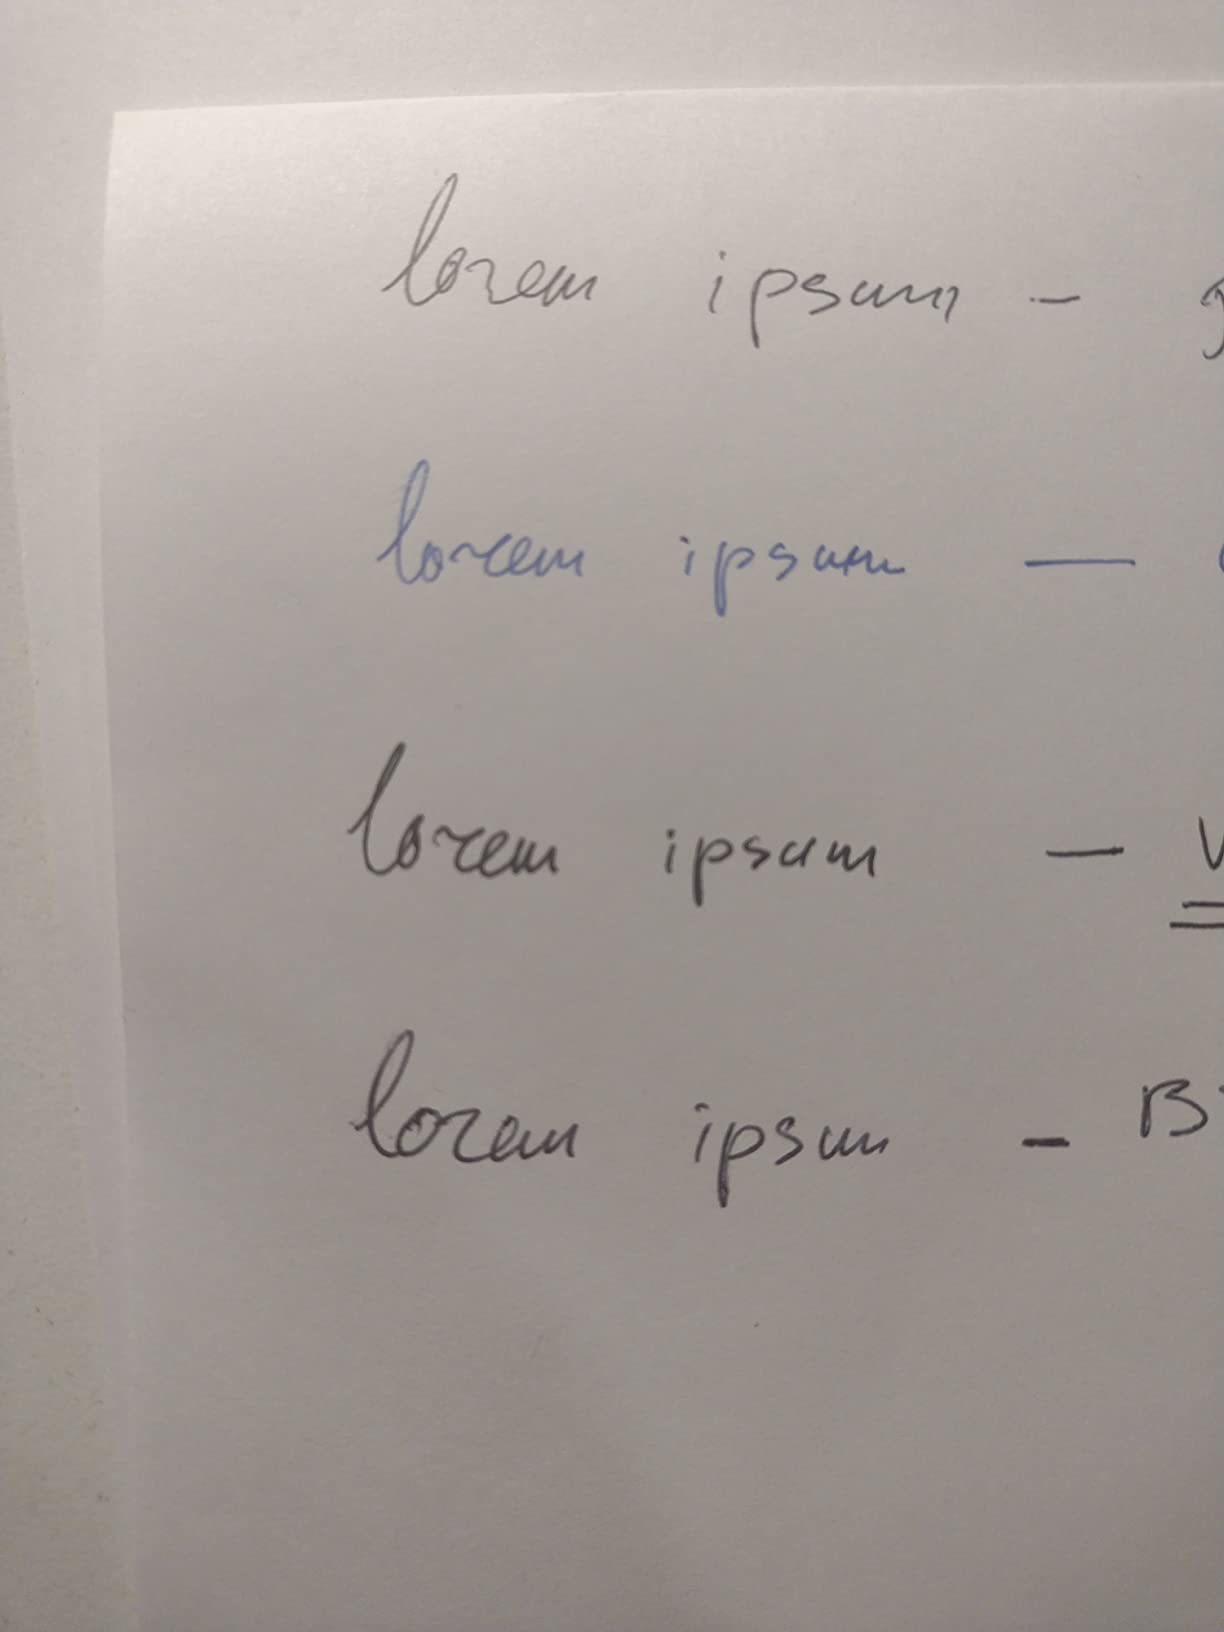 lorem ipsum -
lorem ipsum —
lorem ipsum —
lorem ipsum -